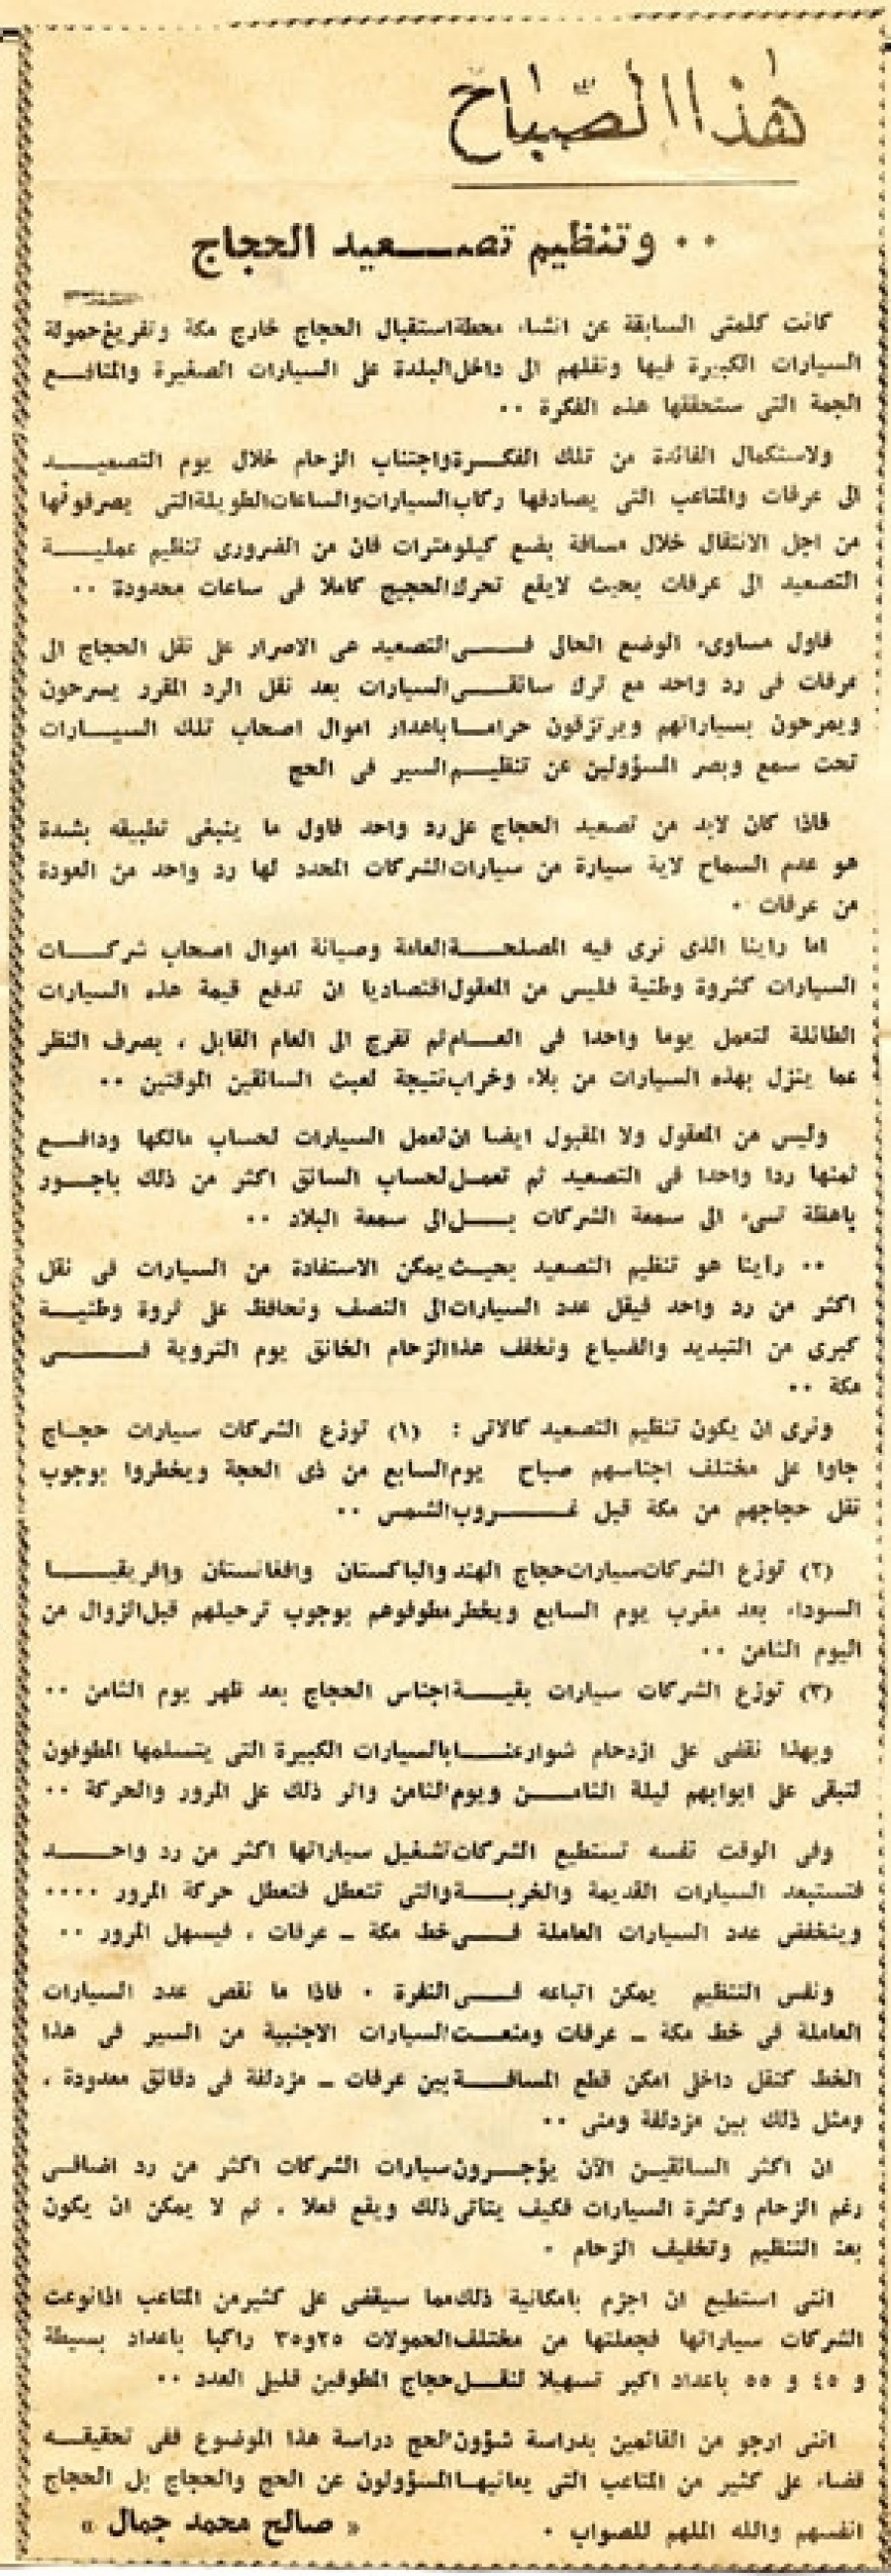 هذا الصباح
٠٠ وتنظيم تصعيد الحجاج
كانت كلمتى السابقة عن انشاء محطة استقبال الحجاج خارج مكة وتفريغ حمولة
السيارات الكبيرة فيها ونقلهم الى داخل البلدة على السيارات الصغيرة والمنافع
الجمة التى ستحققها هذه الفكرة ٠٠
ولاستكمال الفائدة من تلك الفكرة واجتناب الزحام خلال يوم التصعيد
الى عرفات والمتاعب التى يصادفها ركاب السيارات والساعات الطويلة التى يصرفونها
من اجل الانتقال خلال مسافة بضع كيلومترات فان من الضرورى تنظيم عملية
التصعيد الى عرفات بحيث لايقع تحرك الحجيج كاملا فى ساعات محدودة ٠٠
فاول مساوىء الوضع الحالى فى التصعيد هى الاصرار على نقل الحجاج الى
عرفات فى رد واحد مع ترك سائقى السيارات بعد نقل الرد المقرر يسرحون
ويمرحون بسياراتهم ويرتزقون حراما باهدار اموال اصحاب تلك السيارات
تحت سمع وبصر المسؤولين عن تنظيم السير فى الحج
فاذا كان لابد من تصعيد الحجاج على رد واحد فاول ما ينبغى تطبيقه بشدة
هو عدم السماح لاية سيارة من سيارات الشركات المحدد لها رد واحد من العودة
من عرفات ٠
اما راينا الذى نرى فيه المصلحة العامة وصيانة اموال اصحاب شركات
السيارات كثروة وطنية فليس من المعقول اقتصاديا ان ندفع قيمة هذه السيارات
الطائلة لتعمل يوما واحدا فى العام ثم تفرج الى العام القابل ، بصرف النظر
عما ينزل بهذه السيارات من بلاء وخراب نتيجة لعبث السائقين الموقتين ٠٠
وليس من المعقول ولا المقبول ايضا ان تعمل السيارات لحساب مالكها ودافع
ثمنها ردا واحدا فى التصعيد ثم تعمل لحساب السائق اكثر من ذلك باجور
باهظة تسىء الى سمعة الشركات بل الى سمعة البلاد ٠٠
٠٠ رأينا هو تنظيم التصعيد بحيث يمكن الاستفادة من السيارات فى نقل
اكثر من رد واحد فيقل عدد السيارات الى النصف ونحافظ على ثروة وطنية
كبرى من التبديد والضياع ونخفف هذا الزحام الخانق يوم التروية فى
مكة ٠٠
ونرى ان يكون تنظيم التصعيد كالاتى : (١) توزع الشركات سيارات حجاج
جاوا على مختلف اجناسهم صباح يوم السابع من ذى الحجة ويخطروا بوجوب
نقل حجاجهم من مكة قبل غروب الشمس ٠٠
(٢) توزع الشركات سيارات حجاج الهند والباكستان وافغانستان وافريقيا
السوداء بعد مغرب يوم السابع ويخطر مطوفوهم بوجوب ترحيلهم قبل الزوال من
اليوم الثامن ٠٠
(٣) توزع الشركات سيارات بقية اجناس الحجاج بعد ظهر يوم الثامن ٠٠
وبهذا نقضى على ازدحام شوارعنا بالسيارات الكبيرة التى يتسلمها المطوفون
لتبقى على ابوابهم ليلة الثامن ويوم الثامن واثر ذلك على المرور والحركة ٠٠
وفى الوقت نفسه تستطيع الشركات تشغيل سياراتها اكثر من رد واحد
فتستبعد السيارات القديمة والخربة والتى تتعطل فتعطل حركة المرور ٠٠٠٠
وينخفض عدد السيارات العاملة فى خط مكة ــ عرفات ، فيسهل المرور ٠٠
ونفس التنظيم يمكن اتباعه فى النفرة ٠ فاذا ما نقص عدد السيارات
العاملة فى خط مكة ــ عرفات ومنعت السيارات الاجنبية من السير فى هذا
الخط كنقل داخلى امكن قطع المسافة بين عرفات ــ مزدلفة فى دقائق معدودة ،
ومثل ذلك بين مزدلفة ومنى ٠٠
ان اكثر السائقين الآن يؤجرون سيارات الشركات اكثر من رد اضافى
رغم الزحام وكثرة السيارات فكيف يتاتى ذلك ويقع فعلا ، ثم لا يمكن ان يكون
بعد التنظيم وتخفيف الزحام ٠
انثى استطيع ان اجزم بامكانية ذلك مما سيقضى على كثير من المتاعب اذا نوعت
الشركات سياراتها فجعلتها من مختلف الحمولات ٢٥ و ٣٥ راكبا باعداد بسيطة
و ٤٥ و ٥٥ باعداد اكبر تسهيلا لنقل حجاج المطوفين قليل العدد ٠٠
اننى ارجو من القائمين بدراسة شؤون الحج دراسة هذا الموضوع ففى تحقيقه
قضاء على كثير من المتاعب التى يعانيها المسؤولون عن الحج والحجاج بل الحجاج
انفسهم والله الملهم للصواب ٠ « صالح محمد جمال »